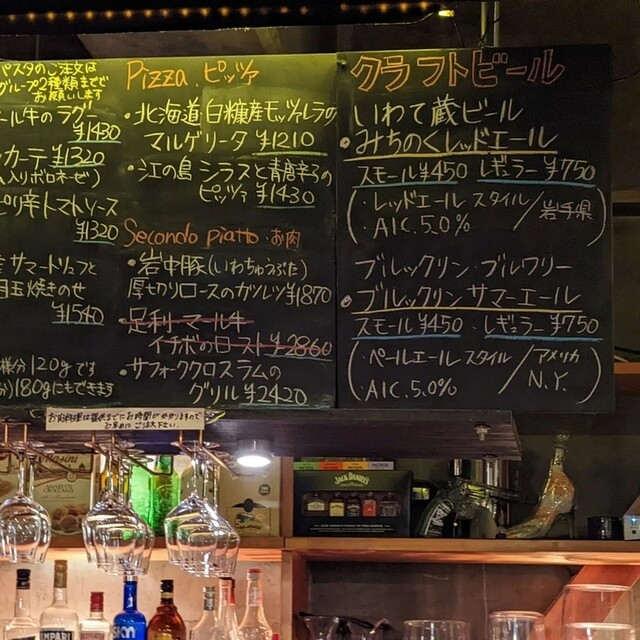 パスタのご注文は
グループ2種類までで
お願いします
ール牛のラグー
¥1430
ッカーテ ¥1320
入りボロネーゼ)
ピリ辛トマトソース
¥1320
サマートリュフと
目玉焼きのせ
¥1540
様分120gです
180gにもできます
Pizza ピッツァ
・北海道白糠産モッツァレラの
マルゲリータ ¥1210
・江の島シラスと青唐辛子の
ピッツァ ¥1430
Secondo piatto・お肉
・岩中豚(いわちゅうぶた)
厚切りロースのカツレツ ¥1870
・足利マール牛
イチボのロースト ¥2860
・サフォーククロスラムの
グリル ¥2420
クラフトビール
いわて蔵ビール
・みちのくレッドエール
スモール¥450 レギュラー¥750
(・レッドエールスタイル/岩手県)
・AIC.5.0%
ブルックリン・ブルワリー
・ブルックリンサマーエール
スモール¥450・レギュラー¥750
(・ペールエールスタイル/アメリカ
・AIC.5.0% N.Y.)
お肉料理は提供までにお時間がかかりますので
お早めにご注文下さい。
JACK DANIEL'S
CAMPARI
SKYY